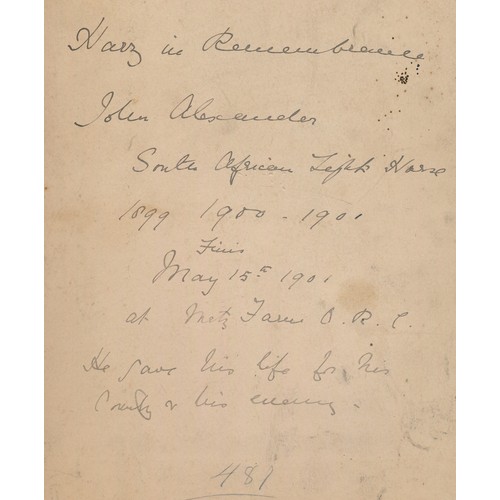 Harz in Remembrance
John Alexander
South African Light Horse
1899 1900 - 1901
Finis
May 15th 1901
at Metz Farm O. R. C.
He gave his life for his
Country & his enemy.
481